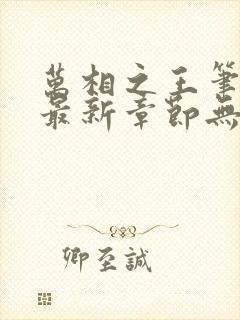 萬相之王筆
最新章節無
卿至誠